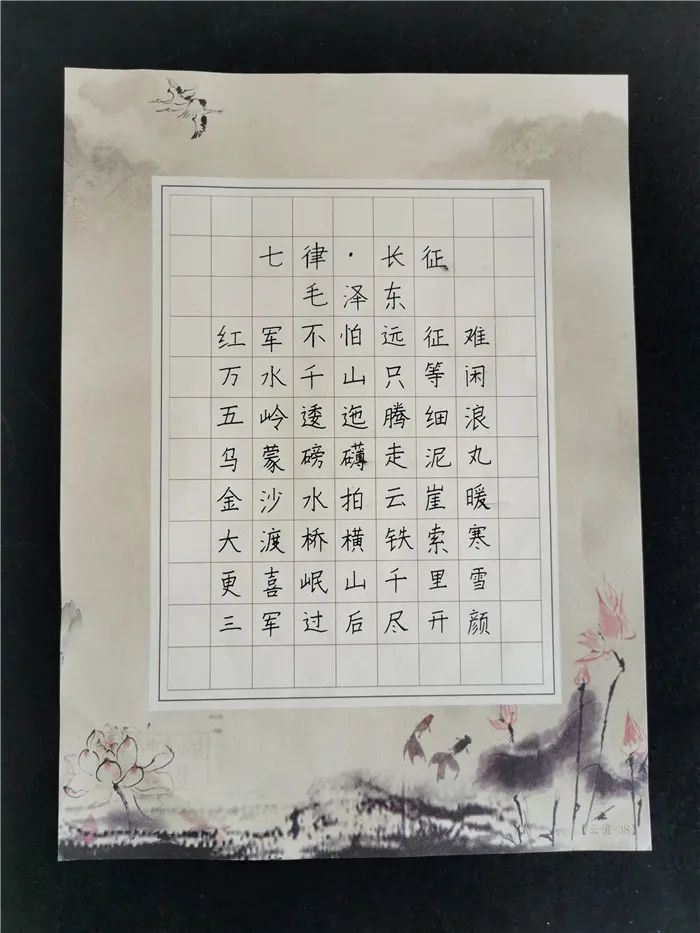 七律·长征
毛泽东
红军不怕远征难
万水千山只等闲
五岭逶迤腾细浪
乌蒙磅礴走泥丸
金沙水拍云崖暖
大渡桥横铁索寒
更喜岷山千里雪
三军过后尽开颜